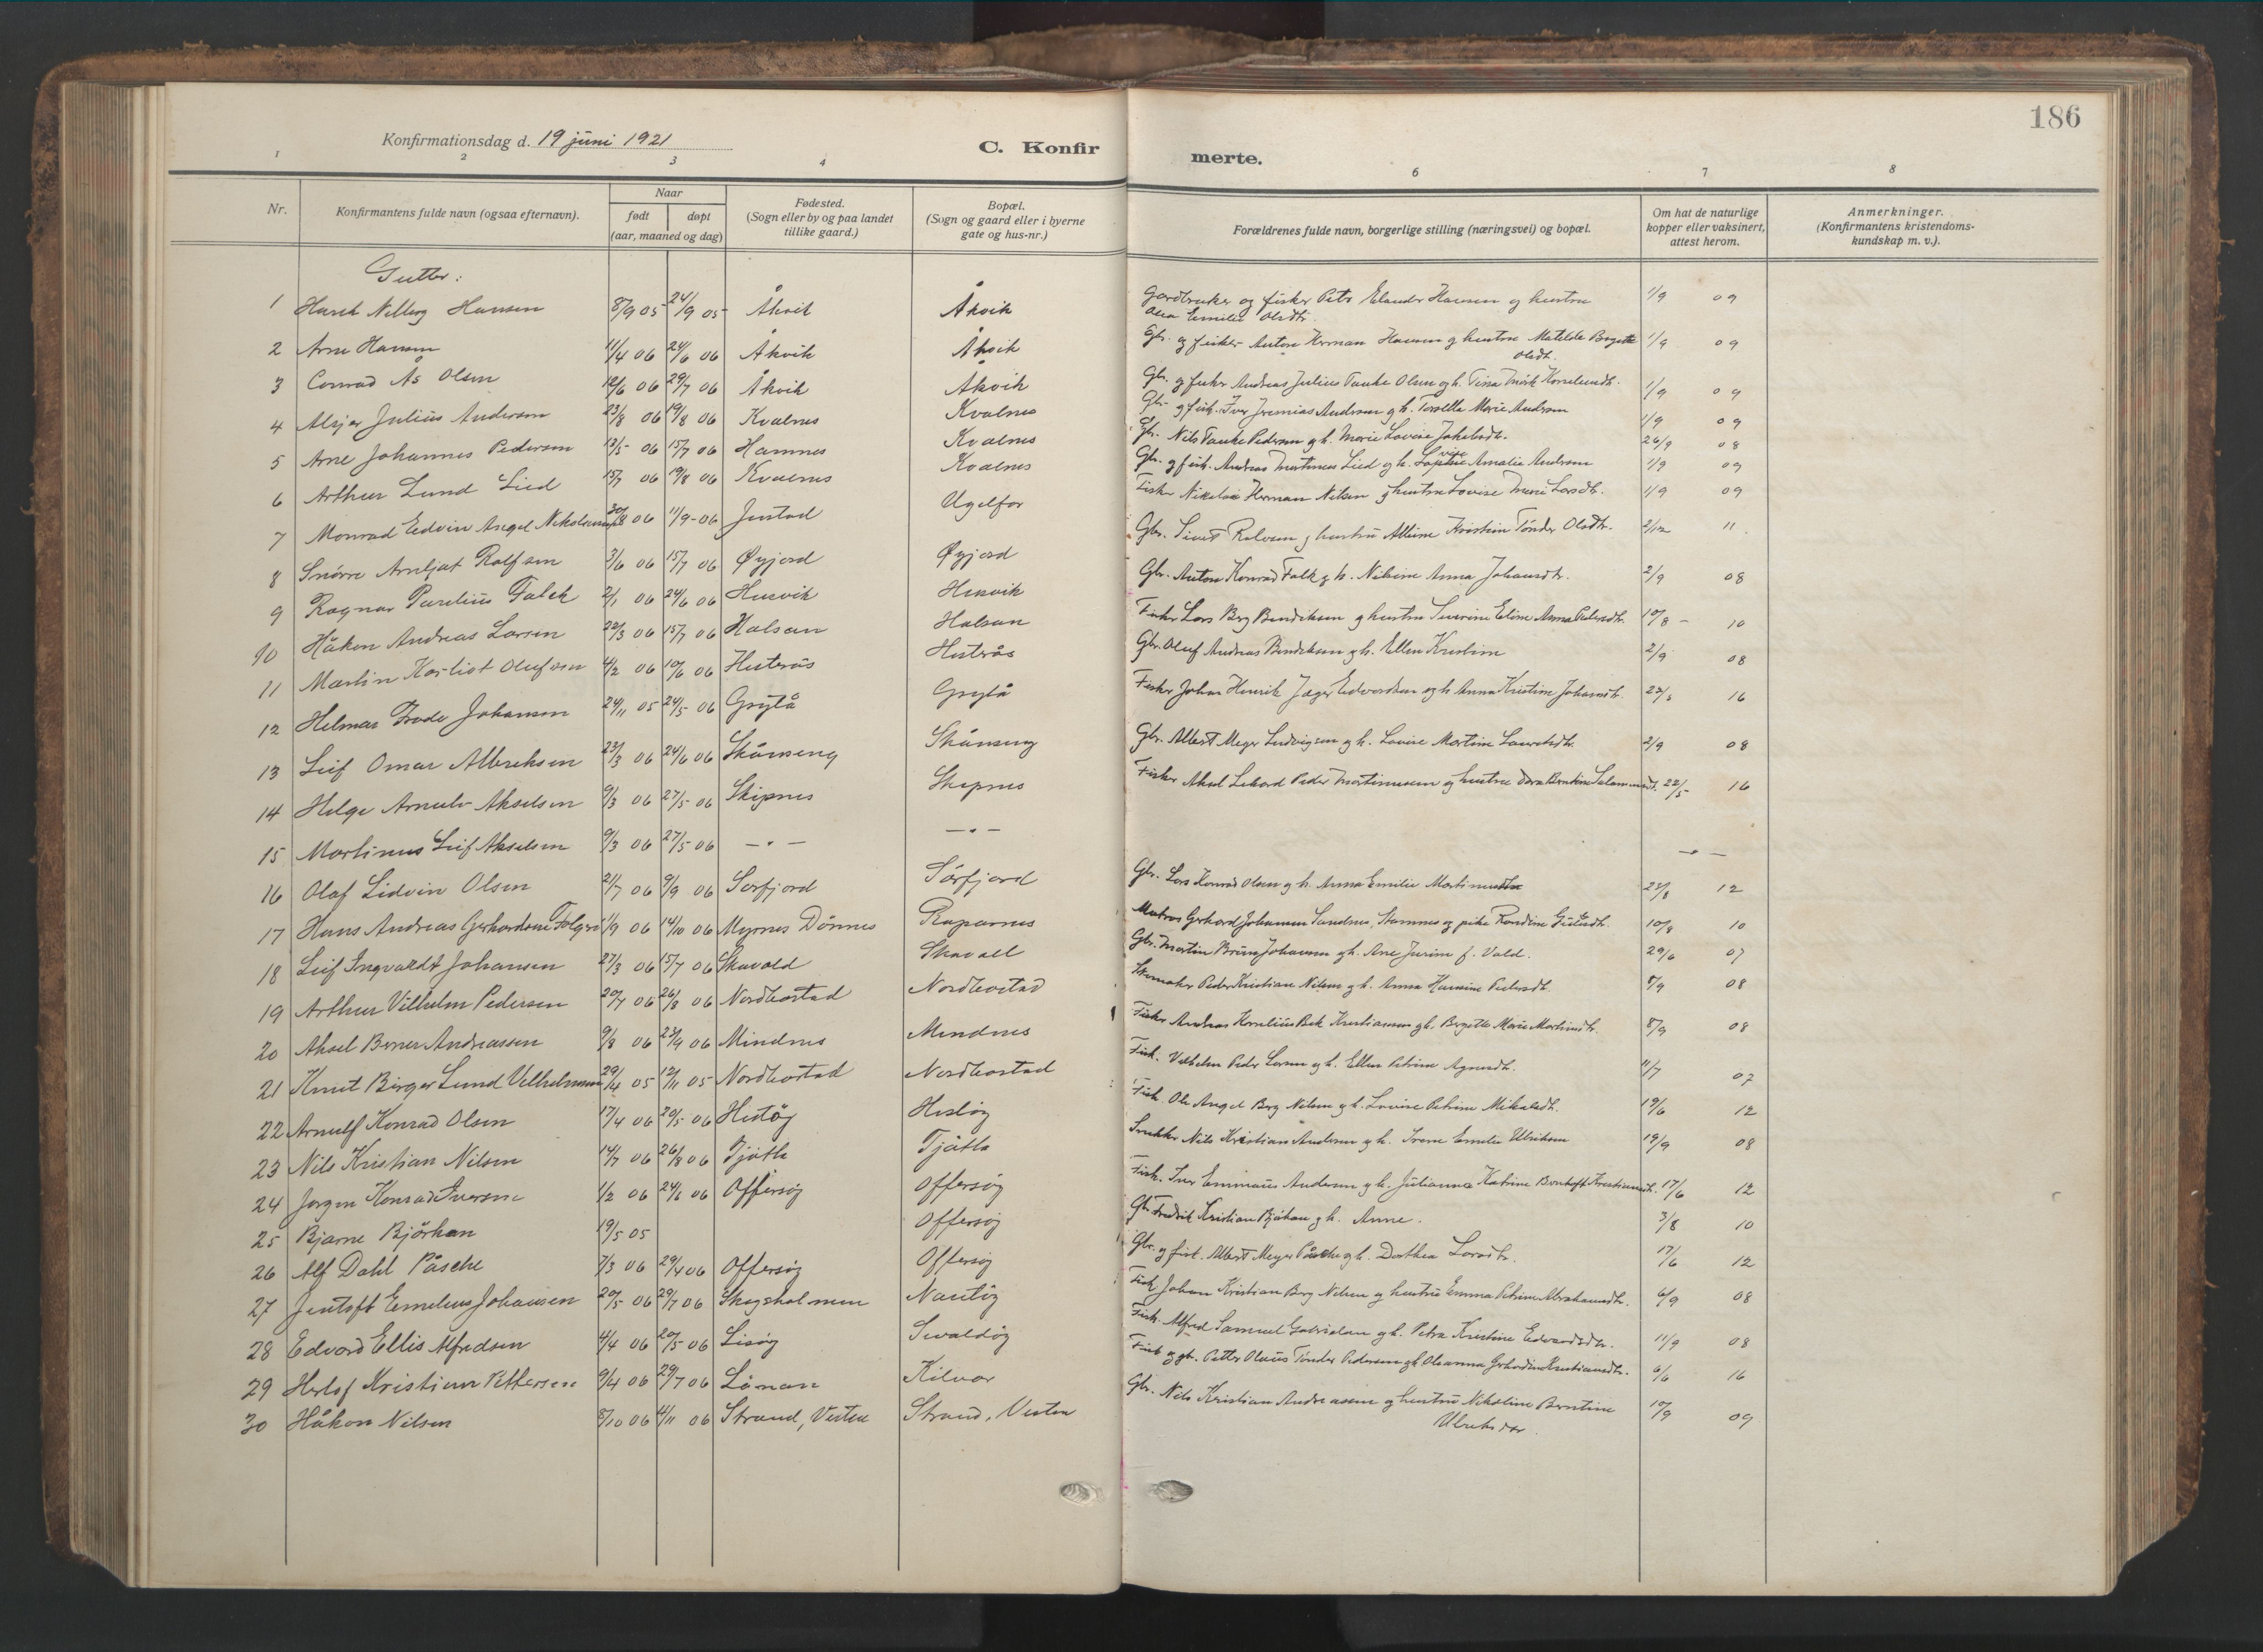 186
Konfirmationsdag d. 19 juni 1921
C. Konfir merte.
1 2 3 4 6 7 8
Nr. Konfirmantens fulde navn (ogsaa efternavn). Naar født døpt (aar, maaned og dag) Fødested. (Sogn eller by og paa landet tillike gaard.) Bopæl. (Sogn og gaard eller i byerne gate og hus-nr.) Forældrenes fulde navn, borgerlige stilling (næringsvei) og bopæl. Om hat de naturlige kopper eller vaksinert, attest herom. Anmerkninger. (Konfirmantens kristendoms-kundskap m. v.).
Gutter:
1 Hansen 8/9 05 24/9 05 Åkvik Åkvik Gardbruker og fisker Hansen og hustru Emilie Olsdtr. 1/9 09
2 Arne Hansen 11/4 06 24/6 06 Åkvik Åkvik Gbr. og fisker Anton Herman Hansen og hustru Matilde Bergitte Olsdt. 1/9 09
3 Conrad Ås Olsen 12/6 06 29/7 06 Åkvik Åkvik Gbr. og fisker Andreas Julius Olsen og h. Tina 1/9 09
4 Julius Andersen 23/8 06 19/8 06 Kvalnes Kvalnes Gbr. og fisk. Iver Jeremias Andersen og h. Marie Andersen 1/9 09
5 Arne Johannes Pedersen 13/5 06 15/7 06 Hamnes Kvalnes Gbr. Nils Pedersen og h. Marie Lovise Jakobsdt. 26/9 08
6 Arthur Lund Lied 15/7 06 19/8 06 Kvalnes Kvalnes Gbr. og fisk. Andreas Martinus Lied og h. Amalie Andersen 1/9 09
7 Monrad Edvin Angel Nikolaisen 30/8 06 11/9 06 Jestad Ugelfor Fisker Nikolai Herman Nilsen og hustru Lovise Marie Larsdt. 1/9 09
8 Snorre Arnljot Rolfsen 3/6 06 15/7 06 Øyjord Øyjord Gbr. Sivert Rolvsen og hustru Kristine Tønder Olsdtr. 2/12 11
9 Ragnar Parelius Falck 2/1 06 24/6 06 Husvik Husvik Gbr. Anton Konrad Falk og h. Nilsine Anna Johansdtr. 2/9 08
10 Håkon Andreas Larsen 22/3 06 15/7 06 Halsan Halsan Fisker Lars Berg Bendiksen og hustru Severine Eline Anna Pedersdt. 10/8 - 10
11 Martin Karliot Olufsen 4/2 06 10/6 06 Husterås Husterås Gbr. Oluf Andreas Bendiksen og h. Ellen Kristine 2/9 08
12 Helmar Frode Johansen 24/11 05 24/5 06 Grytå Grytå Fisker Johan Henrik Jæger Edvardsen og h. Anna Kristine Johansdt. 16
13 Leif Omar Albreksen 23/3 06 24/6 06 Skånseng Skånseng Gbr. Albert Meyer Ludvigsen og h. Lovise Martine 2/9 08
14 Helge Arnulv Akselsen 9/3 06 27/5 06 Skipnes Skipnes Fisker Aksel Peder Martinussen og hustru Dora 22/5 16
15 Martinus Leif Akselsen 9/3 06 27/5 06 — " — — " — — " —
16 Olaf Lidvin Olsen 21/7 06 9/9 06 Sørfjord Sørfjord Gbr. Lars Konrad Olsen og h. Anna Emilie 23/8 12
17 Hans Andreas Gerhardsen 1/9 06 14/10 06 Myrnes Dønnes Gerhard Johannes Sandnes, Stamnes og pike 10/8 10
18 Leif Ingvardt Johansen 27/3 06 15/7 06 Skavold Gbr. Martin Johansen og h. Ane Jurine f. Vold. 29/6 07
19 Arthur Vilhelm Pedersen 20/7 06 26/8 06 Nordbostad Nordbostad Skomaker Peder Kristian Nilsen og h. Anna Hansine Pedersdt. 8/9 08
20 Aksel Berner Andreassen 9/8 06 23/9 06 Mindnes Mindnes Fisker Andreas Kornelius Bek Kristiansen og h. Bergitte Marie Martinsdt. 8/9 08
21 Knut Birger Lund Vilhelmsen 29/4 05 12/11 05 Nordbostad Nordbostad Fisk. Vilhelm Peder Larsen og h. Ellen Petrine 11/7 07
22 Arnulf Konrad Olsen 17/4 06 20/5 06 Hestøy Hestøy Fisk. Ole Angel Berg Nilsen og h. Lovise Petrine Mikalsdt. 19/6 12
23 Nils Kristian Nilsen 14/7 06 26/8 06 Tjøtta Tjøtta Snekker Nils Kristian Andersen og h. Emelie Ulriksen 19/9 08
24 Jørgen Konrad Iversen 1/2 06 24/6 06 Offersøy Offersøy Fisk. Iver Emmaus Andersen og h. Julianna Katrine 17/6 12
25 Bjarne Bjørkan 19/5 05 Offersøy Gbr. Fredrik Kristian Bjørkan og h. Anne. 3/8 10
26 Alf Dahl Påsche 7/3 06 29/4 06 Offersøy Offersøy Gbr. og fisk. Albert Meyer Påsche og h. Dorthea Larsdtr. 17/6 12
27 Jentoft Emelius Johansen 20/5 06 29/7 06 Skogsholmen Fisk. Johan Kristian Berg Nilsen og hustru Emma Petrine Abrahamsdtr. 6/9 08
28 Edvard Ellis Alfredsen 4/4 06 20/5 06 Lisøy Fisk. Alfred Samuel Gabrielsen og h. Petra Kristine Edvardsdtr. 11/9 08
29 Herlof Kristian Pettersen 9/4 06 29/7 06 Lånan Kilvær Fisk og gbr. Petter Olaus Tønder Pedersen og h. Oleanna 6/6 16
30 Håkon Nilsen 8/10 06 4/11 06 Strand, Vesten Strand, Vesten Gbr. Nils Kristian Andreassen og hustru Nikoline Berntine Ulriksdtr. 10/9 09